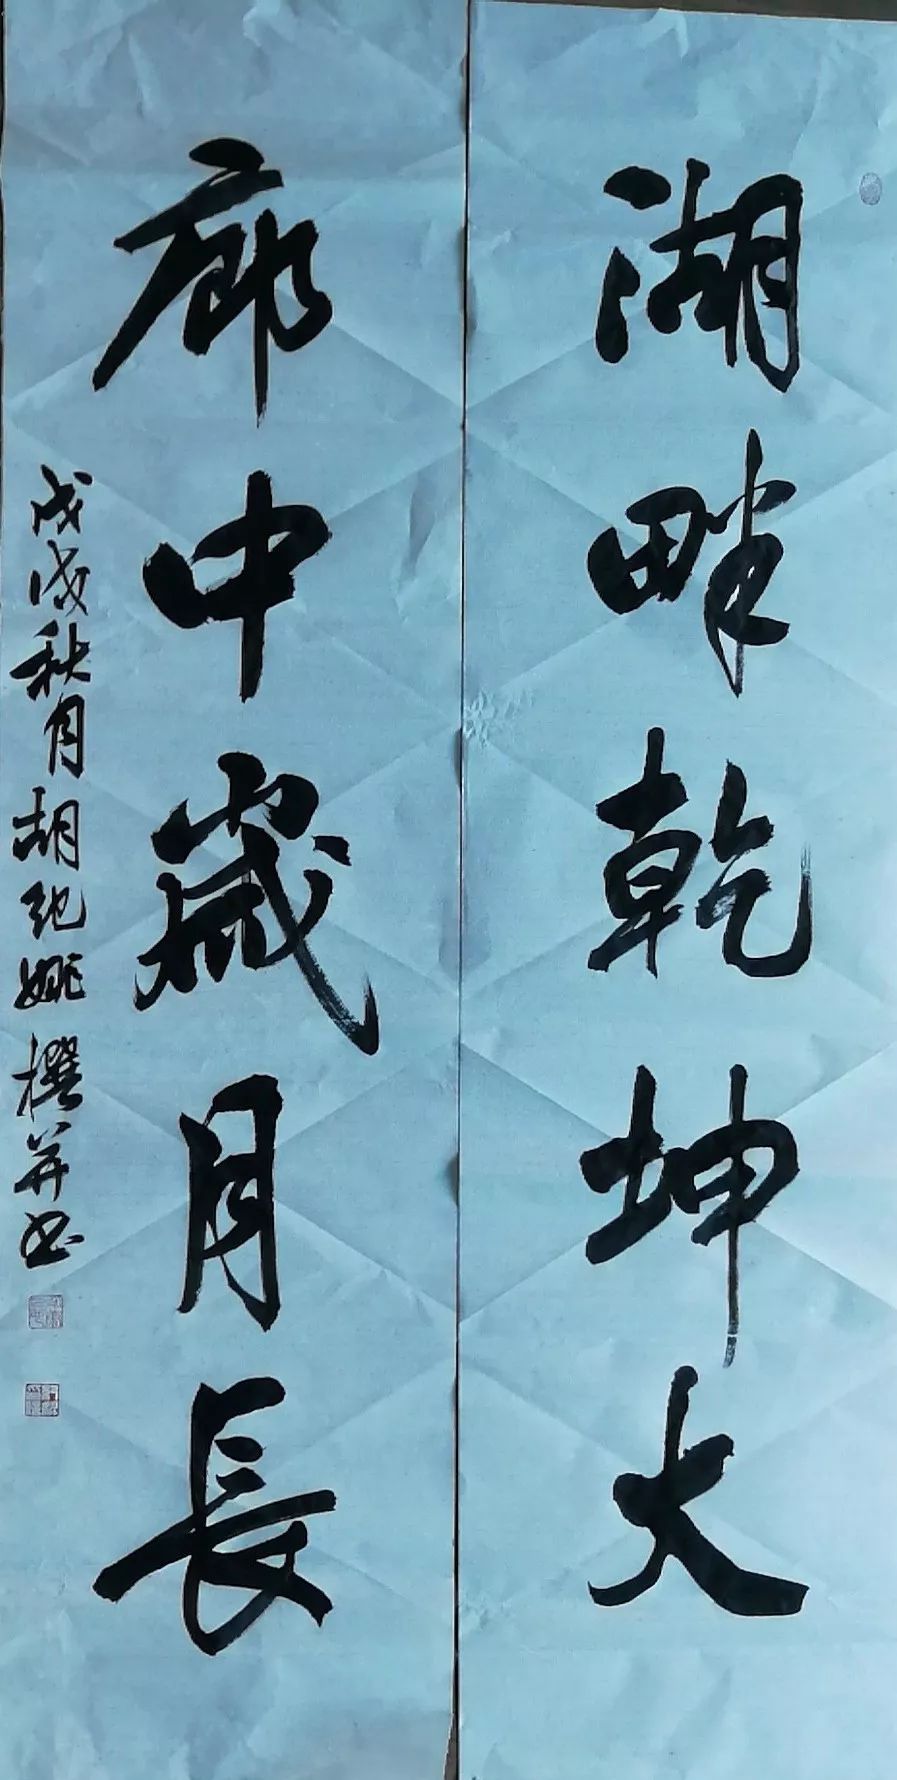 湖畔乾坤大
廊中歲月長
戊戌秋月胡純姚撰并书